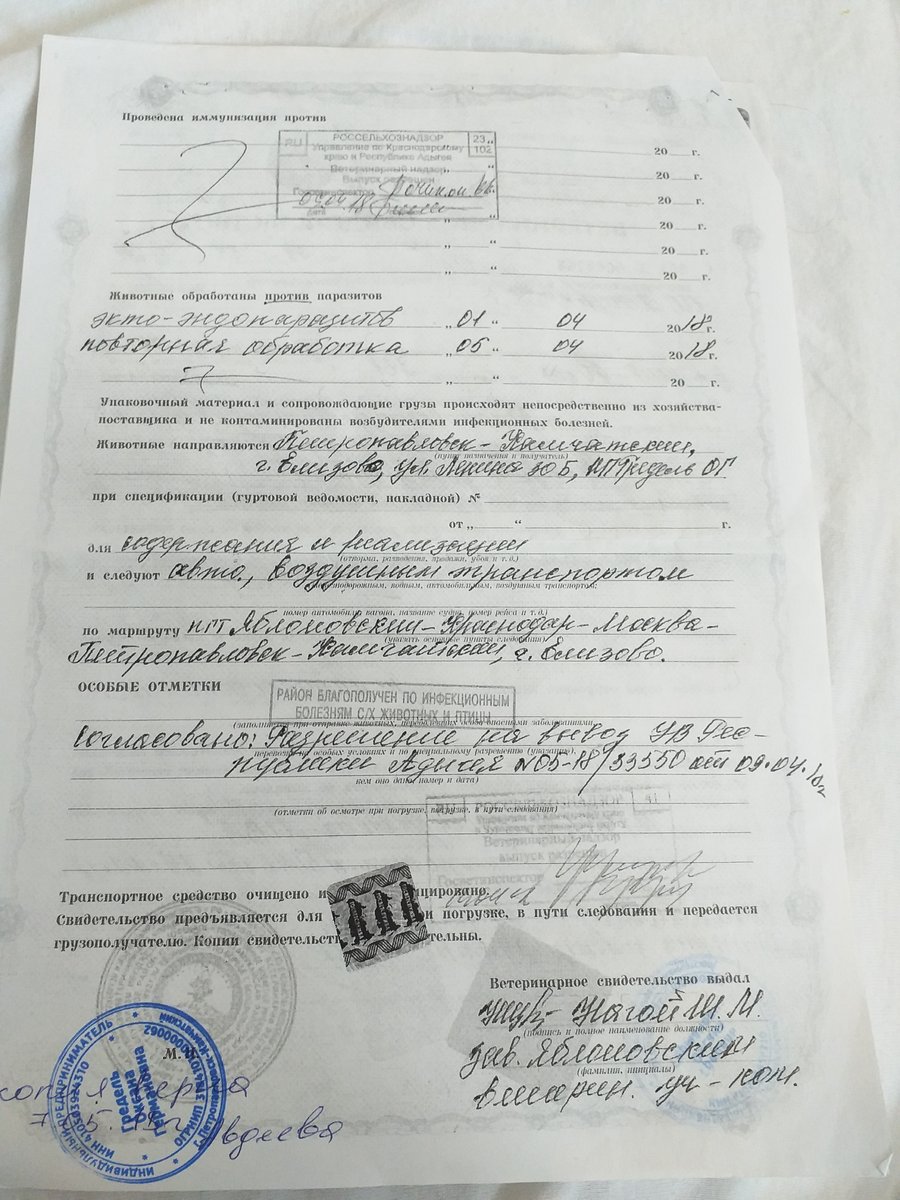 Проведена иммунизация против
РОССЕЛЬХОЗНАДЗОР
RU
23
102
Управление по Краснодарскому
краю и Республике Адыгея
Ветеринарный надзор
Выпуск разрешен
Госветинспектор
дата
„ “ 20 г.
„ “ 20 г.
„ “ 20 г.
„ “ 20 г.
„ “ 20 г.
„ “ 20 г.
Животные обработаны против паразитов
экто-эндопаразитов „01“ 04 2018г.
повторная обработка „05“ 04 2018г.
„ “ 20 г.
Упаковочный материал и сопровождающие грузы происходят непосредственно из хозяйства-
поставщика и не контаминированы возбудителями инфекционных болезней.
Животные направляются Петропавловск-Камчатский,
(пункт назначения и получатель)
г. Елизово, ул. Ленина 30Б, ИП Гредель ОГ
при спецификации (гуртовой ведомости, накладной) №
от „ “ г.
для содержания и реализации
(откорма, разведения, продажи, убоя и т.д.)
и следуют авто, воздушным транспортом
железнодорожным, водным, автомобильным, воздушным транспортом,
номер автомобиля вагона, название судна, номер рейса и т.д.)
по маршруту пгт Яблоновский-Краснодар-Москва-
(указать основные пункты следования)
Петропавловск-Камчатский, г. Елизово.
ОСОБЫЕ ОТМЕТКИ
РАЙОН БЛАГОПОЛУЧЕН ПО ИНФЕКЦИОННЫМ
БОЛЕЗНЯМ С/Х ЖИВОТНЫХ И ПТИЦЫ
(заполняется при отправке животных, переболевших особо опасными заболеваниями,
Согласовано: Разрешение на вывоз УВ Рес-
перевозке на особых условиях и по специальному разрешению (указанию),
публики Адыгея №05-18/33550 от 09.04.18г
кем оно дано, номер и дата)
(отметки об осмотре при погрузке, выгрузке, в пути следования)
РОССЕЛЬХОЗНАДЗОР
41
Ветеринарный надзор
выпуск разрешен
Госветинспектор
Транспортное средство очищено и
Свидетельство предъявляется для погрузке, в пути следования и передается
грузополучателю. Копии свидетельст
Ветеринарное свидетельство выдал
Нагой Ш.М.
(подпись и полное наименование должности)
зав. Яблоновским
(фамилия, инициалы)
М.
копия верна
Авдеева
ИНДИВИДУАЛЬНЫЙ ПРЕДПРИНИМАТЕЛЬ
Гредель
Оксана
ИНН 410503923310